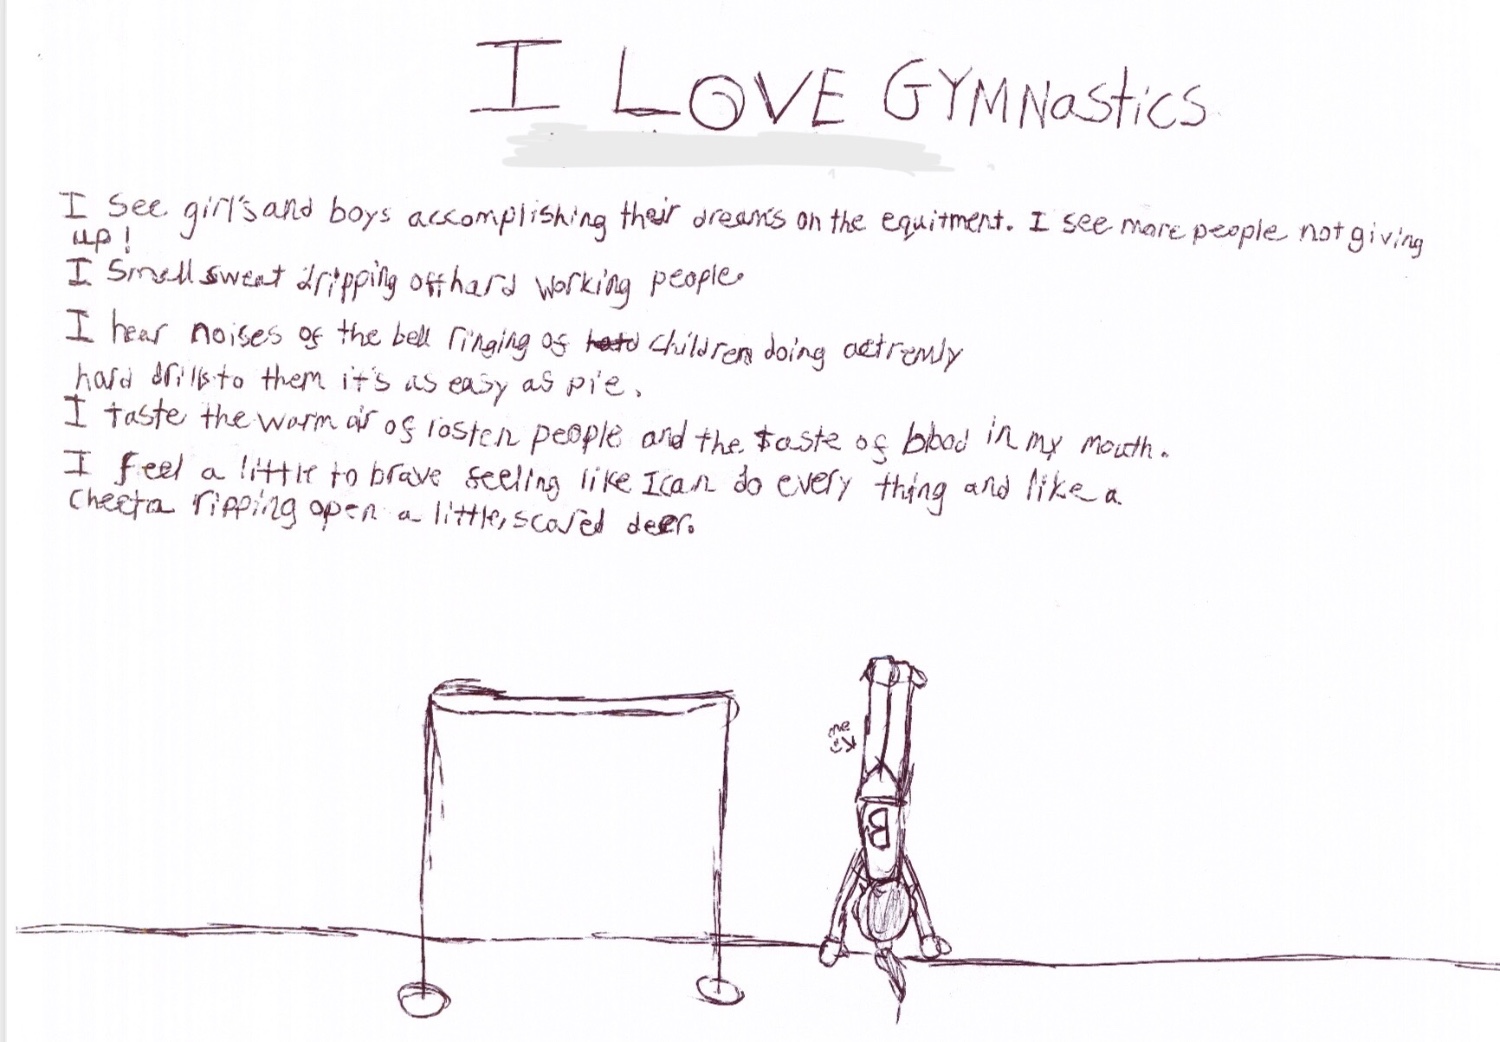 I LOVE GYMNastics
I see girl's and boys accomplishing their dreams on the equitment. I see more people not giving
up!
I Smell sweat dripping off hard working people.
I hear noises of the bell ringing of children doing actremly
hard drills to them it's as easy as pie.
I taste the warm air of rosten people and the taste of blood in my mouth.
I feel a little to brave feeling like I can do every thing and like a
cheeta ripping open a little, scared deer.
me
B